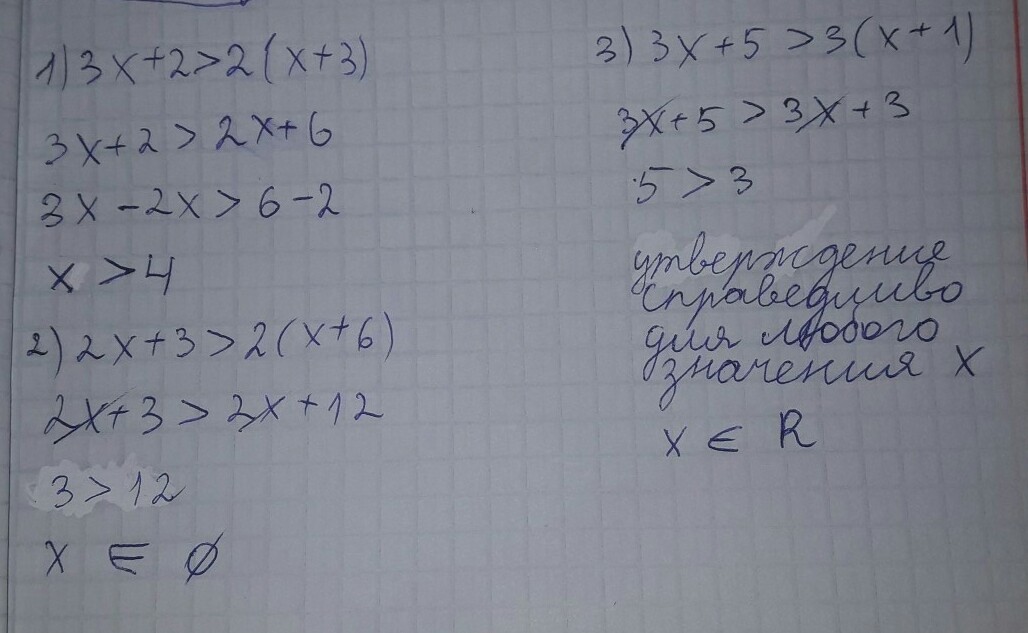 1) 3x+2>2(x+3)
3x+2>2x+6
3x-2x>6-2
x>4
2) 2x+3>2(x+6)
2x+3>2x+12
3>12
x ∈ ∅
3) 3x+5>3(x+1)
3x+5>3x+3
5>3
утверждение
справедливо
для любого
значения x
x ∈ R